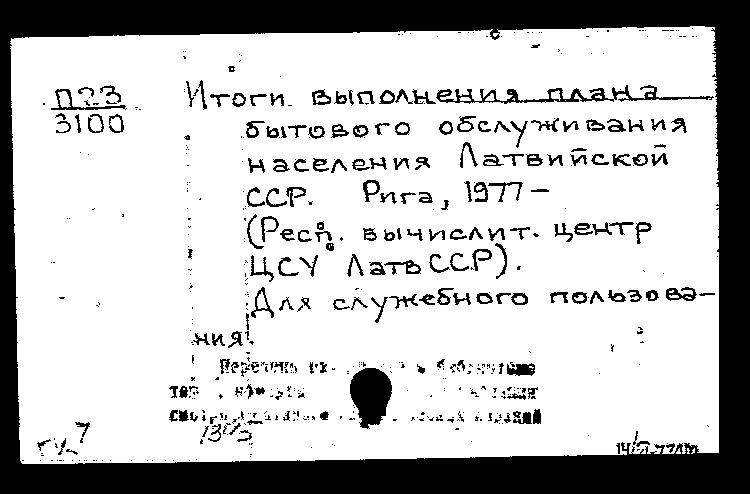 П23
3100
Итоги выполнения плана
бытового обслуживания
населения Латвийской
ССР. Рига, 1977 —
(Респ. вычислит. центр
ЦСУ ЛатвССР).
Для служебного пользова-
ния.
Перечень
7